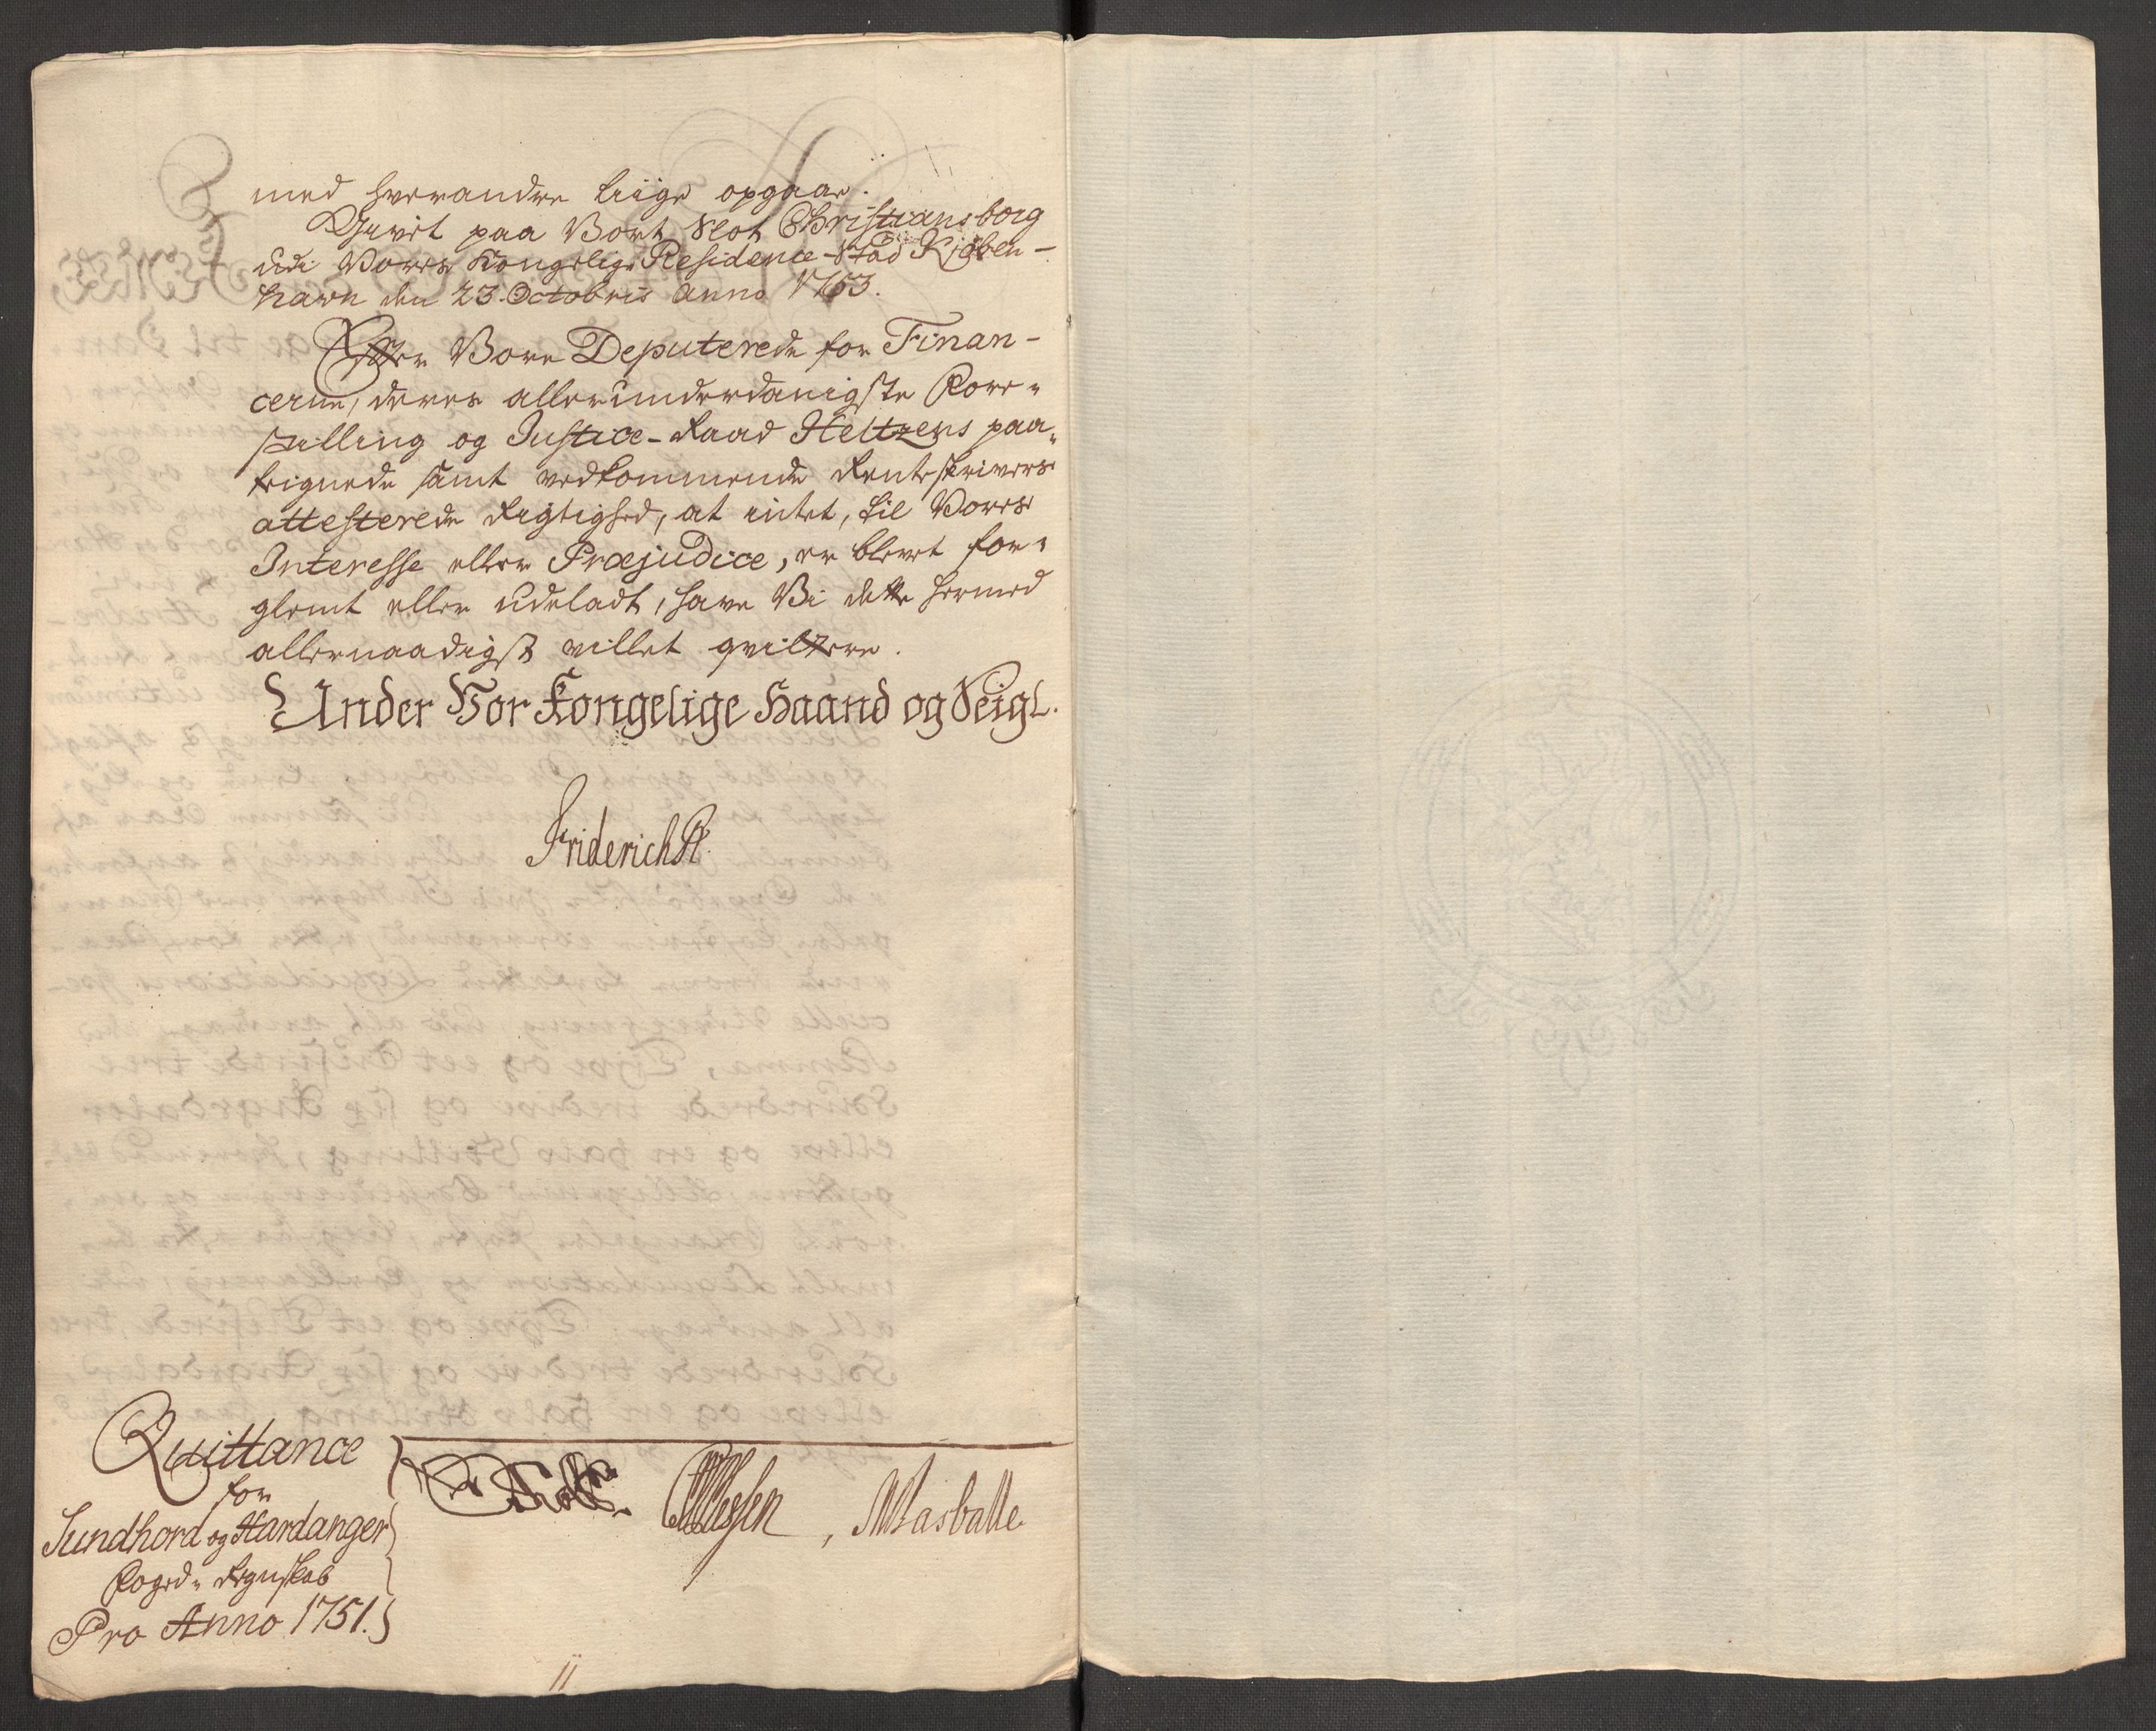 med hverandre liige opgaar.
Givet paa Vort Slot Christiansborg
udi Vores Kongelige Residence-Stad Kiøben-
havn den 23. Octobris Anno 1753.
Efter Vore Deputerede for Finan-
cerne, deres allerunderdanigste Fore-
stilling og Justice-Raad Heltzens paa-
teignede samt vedkommende Renteskrivers
attesterede Rigtighed, at intet, til Vores
Interesse eller Præjudice, er blevet for-
glemt eller udeladt, have Vi dette hermed
allernaadigst villet qvittere.
Under Vor Kongelige Haand og Seigl.
Friderich R.
Quittance
for
Sundhord og Hardanger
Foged- Regnskab
Pro Anno 1751.
Masballe